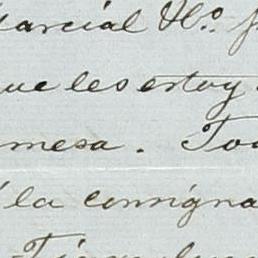 Marcial Hº. f
ue les estoy
mesa. Too
la consigna